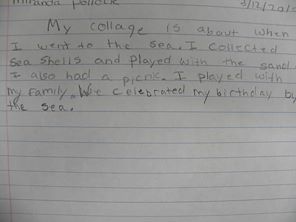 Miranda Pollock
My collage is about when
I went to the sea. I collected
Sea shells and played with the sand.
I also had a picnic. I played with
my family. We celebrated my birthday by
the sea.